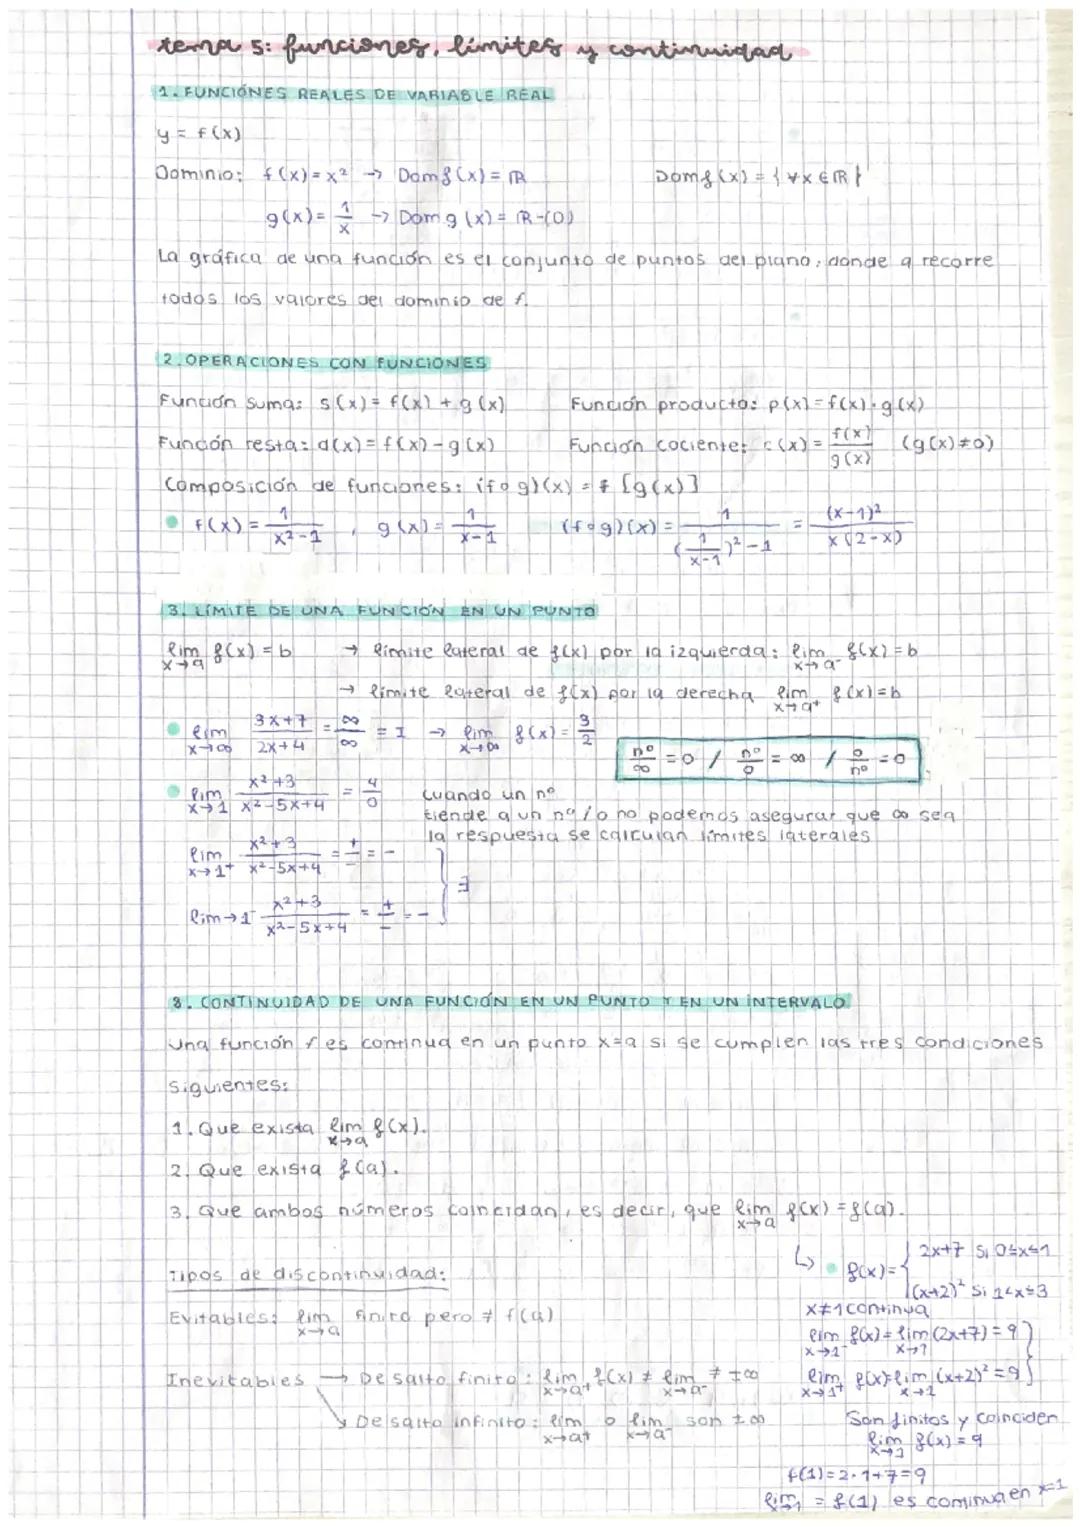 tema 5: funciones, límites y continuidad
1. FUNCIÓNES REALES DE VARIABLE REAL
y = f(x)
Dominio: f(x) = x² → Dom f(x) = ℝ Dom f(x) = { ∀x ∈ ℝ }
g(x) = 1/x → Dom g(x) = ℝ-(0)
La gráfica de una función es el conjunto de puntos del plano, donde a recorre
todos los valores del dominio de f.
2. OPERACIONES CON FUNCIONES
Función suma: s(x) = f(x) + g(x) Función producto: p(x) = f(x) · g(x)
Función resta: d(x) = f(x) - g(x) Función cociente: c(x) = f(x)/g(x) (g(x)≠0)
Composición de funciones: (f∘g)(x) = f [g(x)]
• f(x) = 1/(x²-1) , g(x) = 1/(x-1) (f∘g)(x) = 1/((1/(x-1))²-1) = (x-1)²/(x(2-x))
3. LÍMITE DE UNA FUNCIÓN EN UN PUNTO
lim x→a f(x) = b → límite lateral de f(x) por la izquierda: lim x→a⁻ f(x) = b
→ límite lateral de f(x) por la derecha lim x→a⁺ f(x) = b
• lim x→∞ (3x+7)/(2x+4) = ∞/∞ = I → lim x→∞ f(x) = 3/2
nº/∞ = 0 / nº/0 = ∞ / 0/nº = 0
• lim x→1 (x²+3)/(x²-5x+4) = 4/0 Cuando un nº
tiende a un nº/0 no podemos asegurar que ∞ sea
la respuesta se calculan límites laterales
lim x→1⁺ (x²+3)/(x²-5x+4) = +/- = -
∃
lim→1⁻ (x²+3)/(x²-5x+4) = +/- = -
3. CONTINUIDAD DE UNA FUNCIÓN EN UN PUNTO Y EN UN INTERVALO
Una función f es continua en un punto x=a si se cumplen las tres condiciones
siguientes:
1. Que exista lim x→a f(x).
2. Que exista f(a).
3. Que ambos números coincidan, es decir, que lim x→a f(x) = f(a).
Tipos de discontinuidad:
Evitables: lim x→a finito pero ≠ f(a)
Inevitables → De salto finito: lim x→a⁺ f(x) ≠ lim x→a⁻ ≠ ±∞
↘ De salto infinito: lim x→a⁺ o lim x→a⁻ son ±∞
↳ • f(x) = { 2x+7 si 0≤x≤1
(x+2)² si 1<x≤3
x≠1 continua
lim x→1⁻ f(x) = lim x→1 (2x+7) = 9
lim x→1⁺ f(x) = lim x→1 (x+2)² = 9
Son finitos y coinciden
lim x→1 f(x) = 9
f(1) = 2·1+7 = 9
lim x→1 = f(1) es continua en x=1